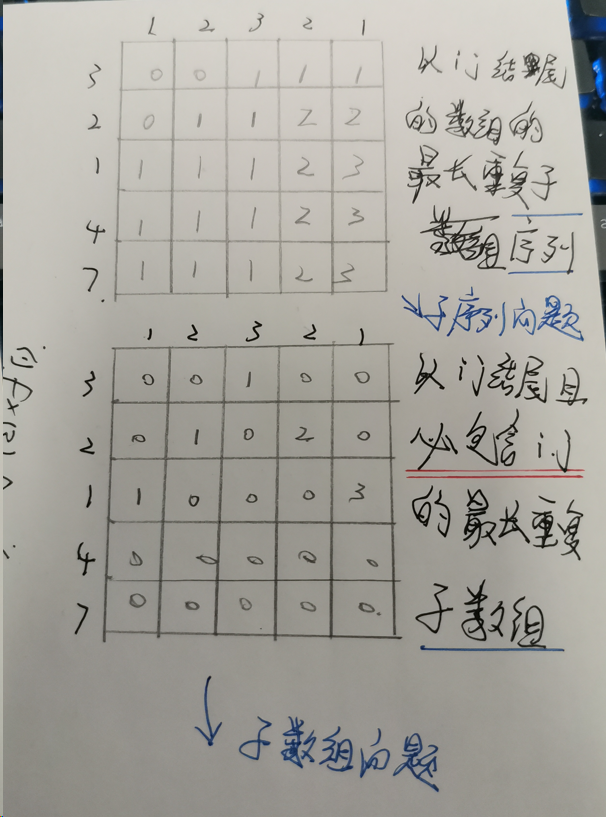 1 2 3 2 1
3 0 0 1 1 1
2 0 1 1 2 2
1 1 1 1 2 3
4 1 1 1 2 3
7 1 1 1 2 3
从i j结尾
的数组的
最长重复子
序列
↘子序列问题
1 2 3 2 1
3 0 0 1 0 0
2 0 1 0 2 0
1 1 0 0 0 3
4 0 0 0 0 0
7 0 0 0 0 0
从i j结尾且
必包含i j
的最长重复
子数组
↓子数组问题